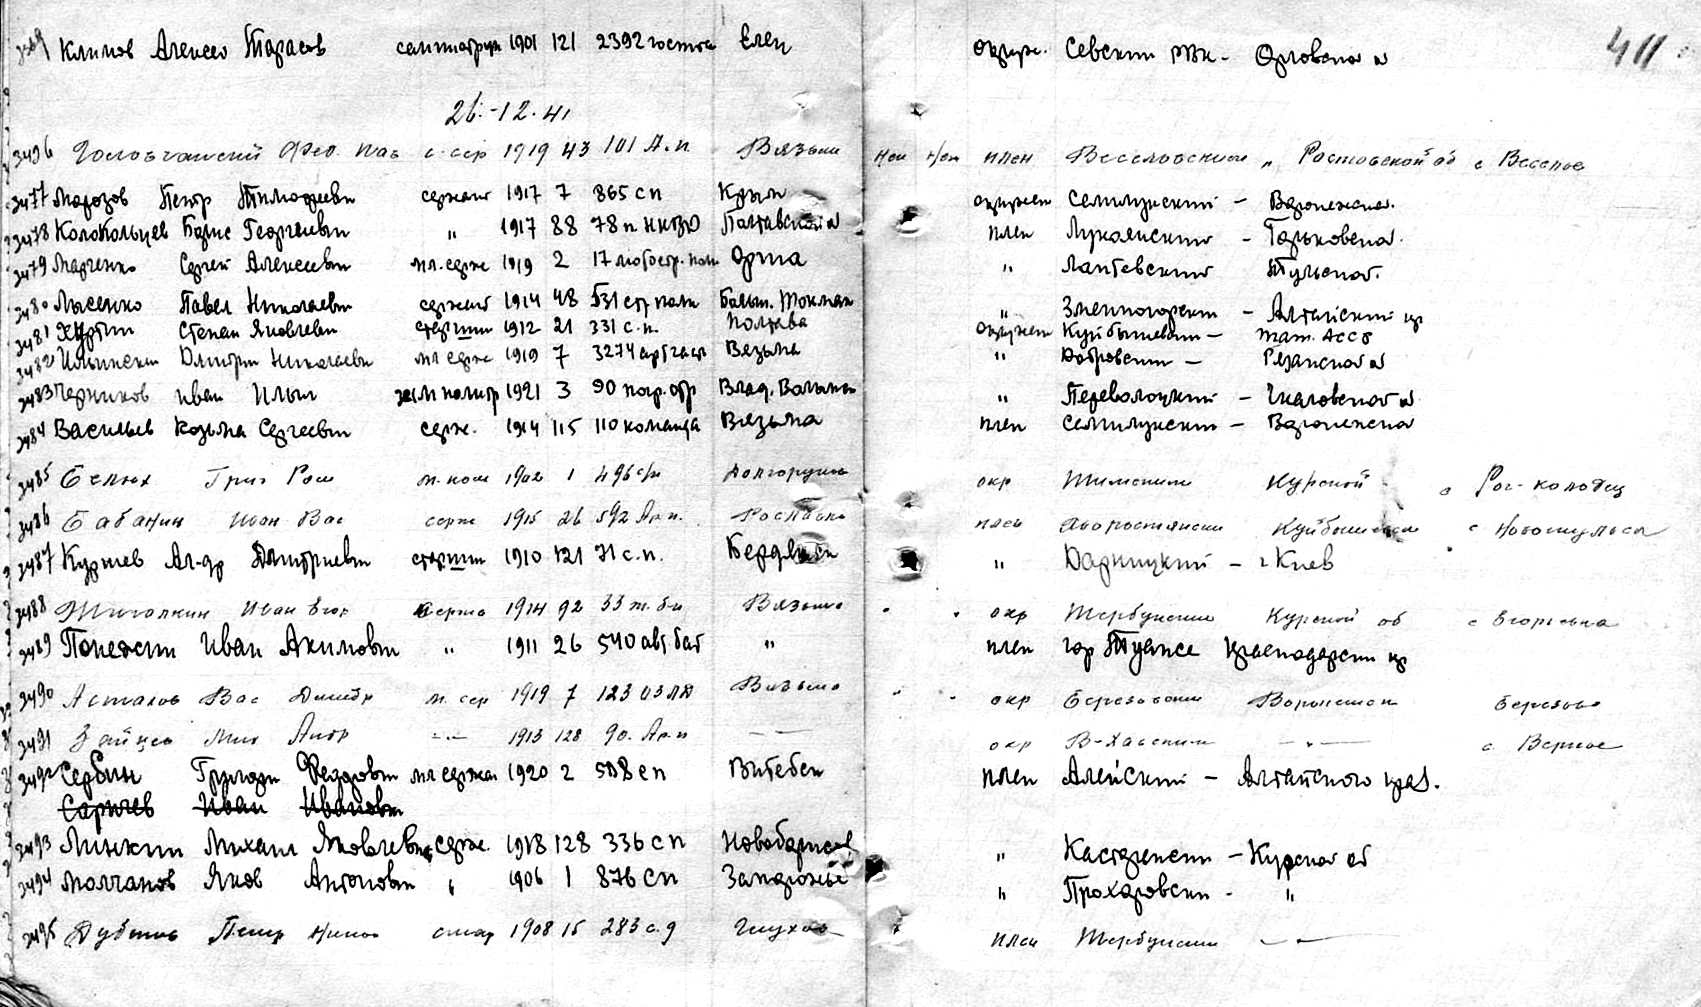 Климов Алексей Тарасов 1901 121 2392 Елец окруж. Севский рвк - Орловской
411
26.-12.41
3476 1919 43 101 А.п Вязьма плен Веселовский „ Ростовской об с Веселое
3477 Морозов Петр Тимофеевич сержант 1917 7 865 сп Крым окружен Семилукский - Воронежской.
3478 Колокольцев Борис Георгиевич „ 1917 88 78 п НКВД Полтавской плен Лукоянский - Горьковской.
3479 Марченко Сергей Алексеевич мл. серж 1919 2 17 Орша „ Лаптевский Тульской.
3480 Лысенко Павел Николаевич сержант 1914 48 531 стр полк Больш. Токмак „ Змеиногорский - Алтайский кр
3481 Степан Яковлевич старшин 1912 21 331 с.п. Полтава окружен Куйбышевский - Тат. АССР
3482 Ильинский Дмитрий Николаевич мл серж 1919 7 3274 Вязьма „ Добровский - Рязанской
3483 Черников Иван Ильич зам политр 1921 3 90 погр. отр Влад. Волынск „ Переволоцкий - Чкаловской
3484 Васильев Козьма Сергеевич серж. 1914 115 110 команда Вязьма плен Семилукский - Воронежской
3485 Белых Григ Ром 1902 1 496 Долгоруково окр Тимский Курской Рог-колодец
3486 Бабанин Иван Вас серж 1915 26 592 Ар.п. Рославль плен Куйбышевской с
3487 Ал-др Дмитриевич старшин 1910 121 71 с.п. Бердянск „ Дарницкий - г Киев
3488 Жиголкин Иван Егор 1914 92 33 Вязьма окр Тербунский Курской об с
3489 Иван Акимович „ 1911 26 540 авт. бат „ плен гор Туапсе Краснодарский кр
3490 Астахов Вас Дмитр 1919 7 123 ОЗАД Вязьма окр Березовский Воронежск Березово
3491 Зайцев Мих Андр -„- 1913 128 90. Ар.п -„- окр В-Хавский -„- с.
3492 Сербин Григори Федорович мл сержан 1920 2 508 сп Витебск плен Алейский - Алтайского края.
Сарычев Иван Иванович
3493 Линкин Михаил Яковлевич серж. 1918 128 336 сп Новоборисов „ Касторенский - Курской об
3494 Молчанов Яков Антонович „ 1906 1 876 сп Запорожье „ Прохоровский - „
3495 Петр 1908 15 283 с.д Глухов плен Тербунский -„-